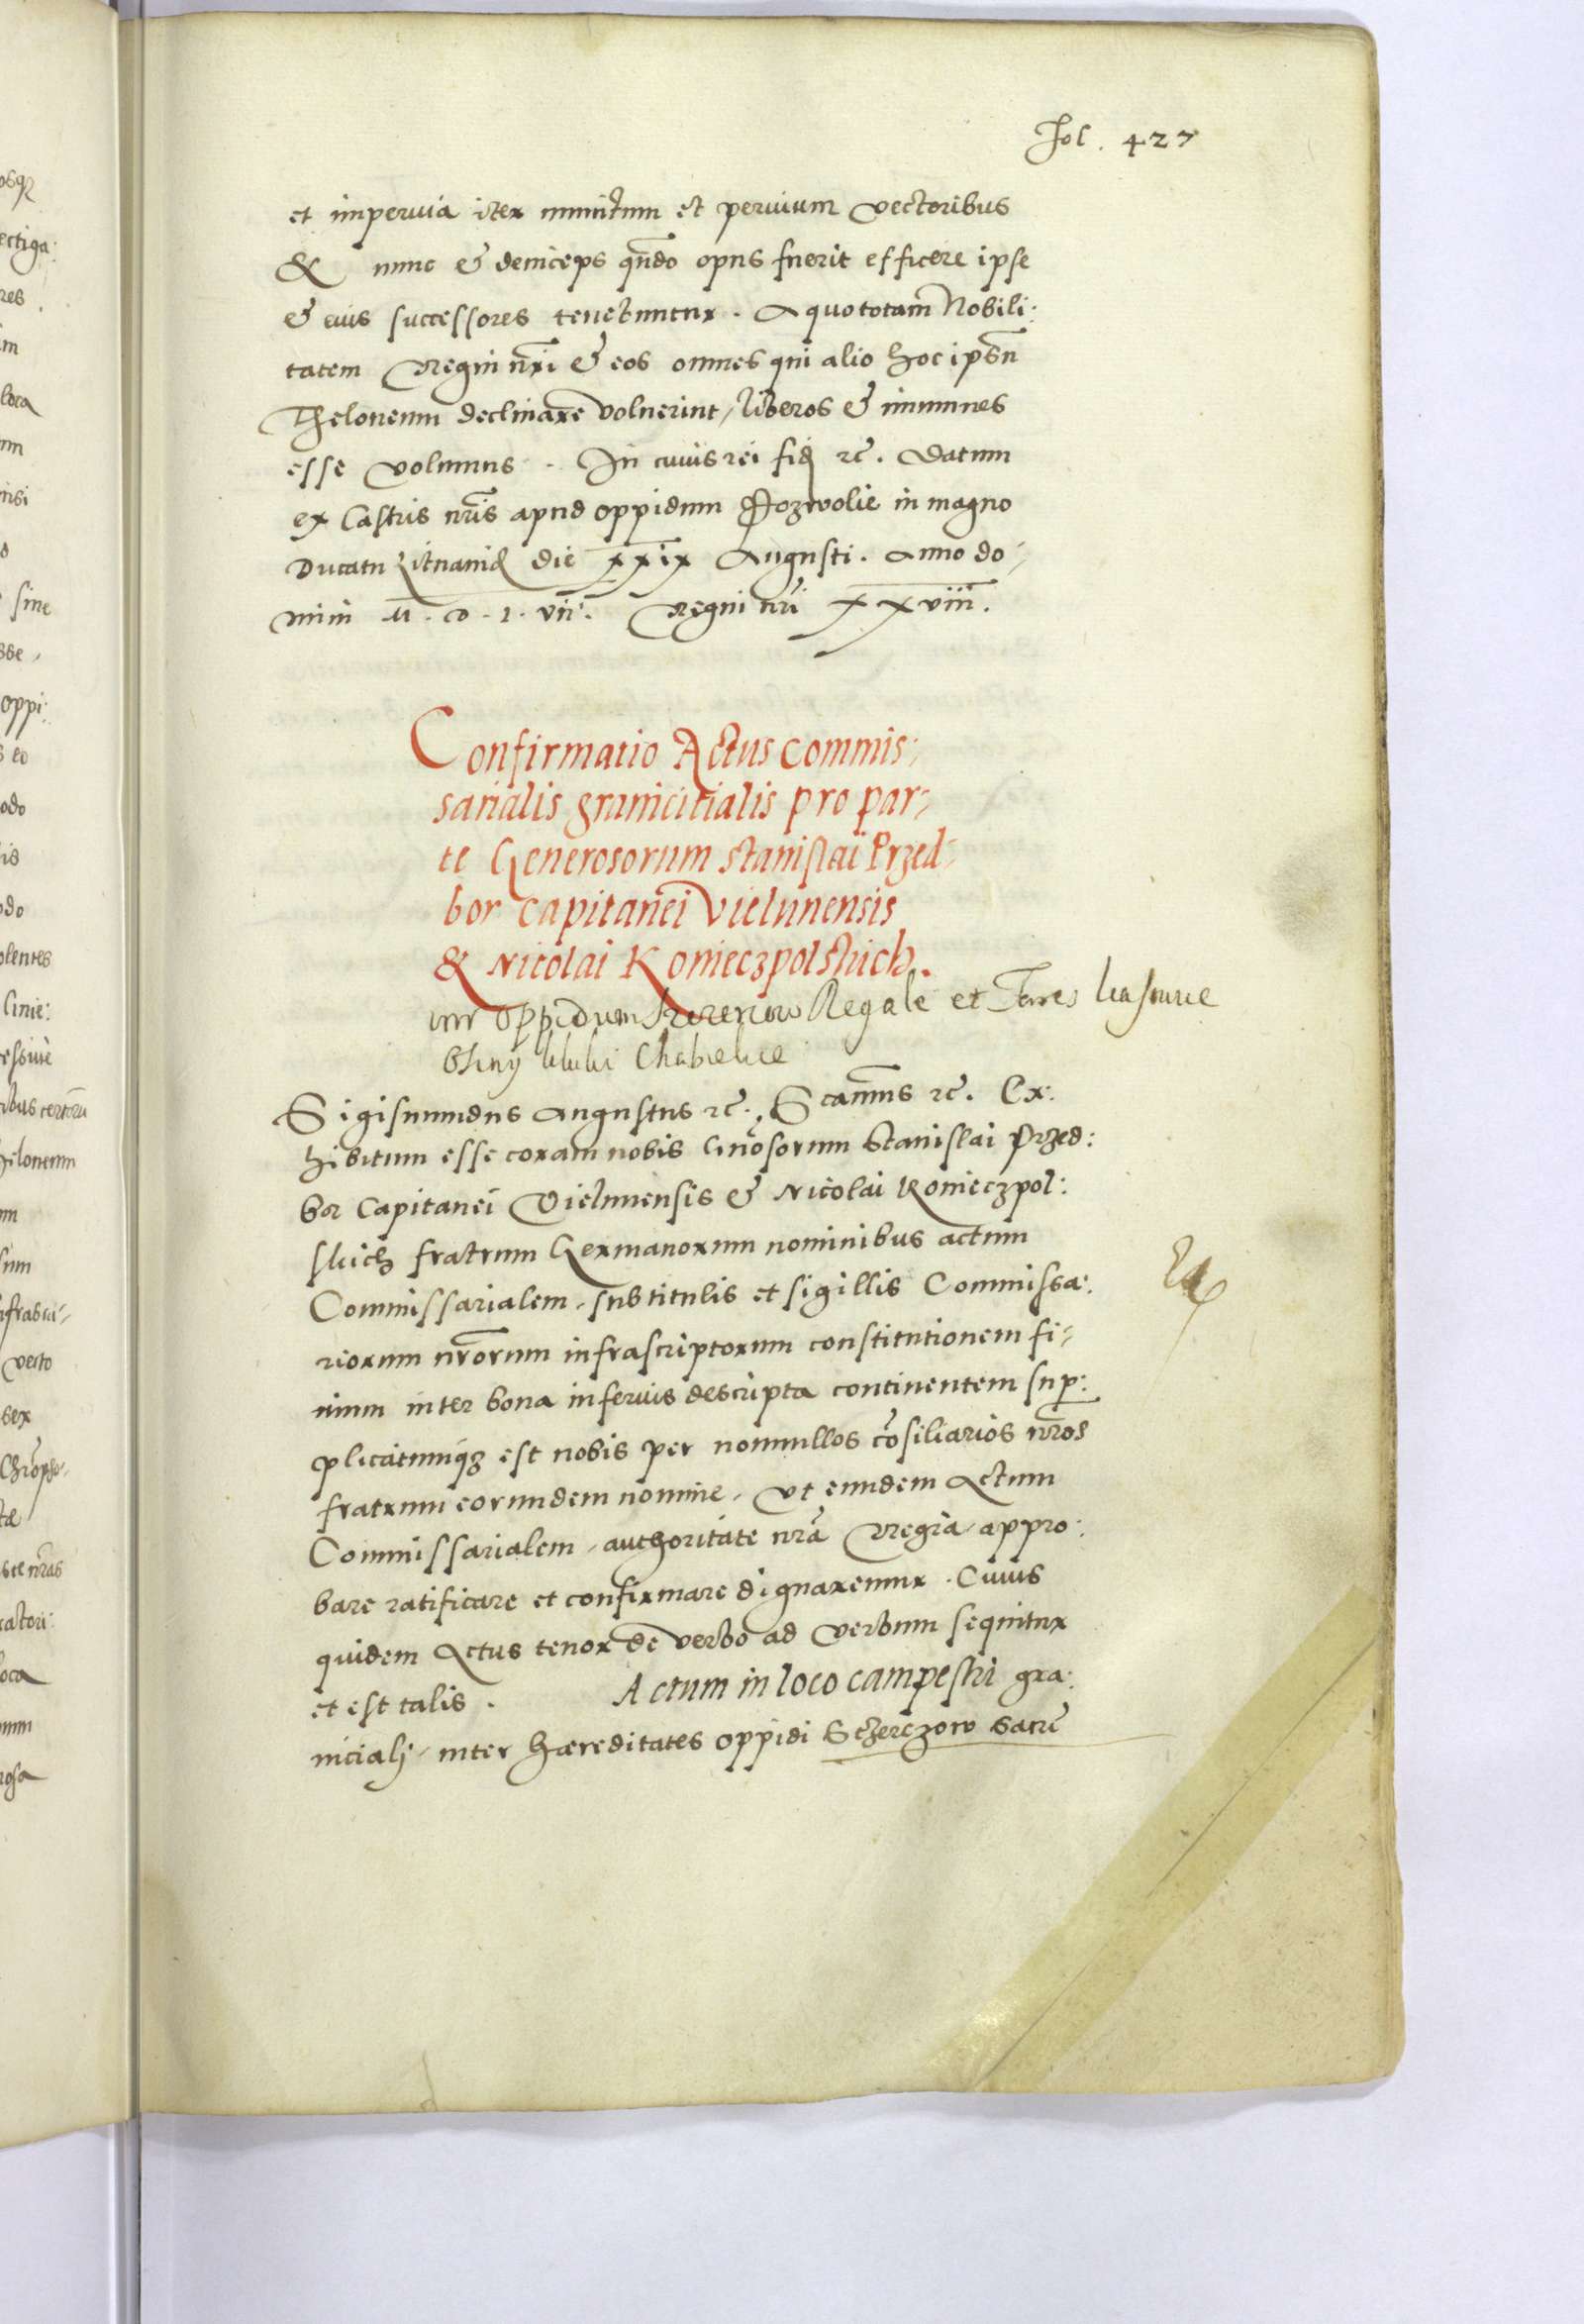 Fol. 427
et imperuia iter munitum et peruium vectoribus
& nunc & deinceps qn̄do opus fuerit efficere ipse
& eius successores tenebuntur. A quo totam Nobili:
tatem Regni nr̄i & eos omnes qui alio hoc ipsn̄
Theloneum declinare voluerint, liberos & immunes
esse volumus. In cuius rei fid rc̄. Datum
ex Castris nr̄is apud oppidum Pozwolie in magno
Ducatu Litvaniȩ die xxix Augusti. Anno do-
mini M.D.L.vii. Regni nr̄i xxviii.
Confirmatio Actus Commis:
sarialis granicitialis pro par-
te Generosorum Stanislai Przed-
bor Capitanei Vielunensis
& Nicolai Konieczpolskich.
oppidum Regale et
Sigismundus Augustus rc̄. Significamus rc̄. Ex:
hibitum esse coram nobis Gnōsorum Stanislai Przed:
bor Capitanei Vielunensis & Nicolai Konieczpol:
skich fratrum Germanorum nominibus actum
Commissarialem, sub titulis et sigillis Commissa:
riorum nr̄orum infrascriptorum constitutionem fi-
nium inter bona inferius descripta continentem sup:
plicatumqꝫ est nobis per nonnullos cōsiliarios nr̄os
fratrum eorundem nomine, vt eundem Actum
Commissarialem, authoritate nr̄a Regia appro:
bare ratificare et confirmare dignaremur. Cuius
quidem Actus tenor de verbo ad verbum sequitur
et est talis. Actum in loco campestri gra:
niciali, inter hæreditates oppidi Sczerczow Sacrȩ